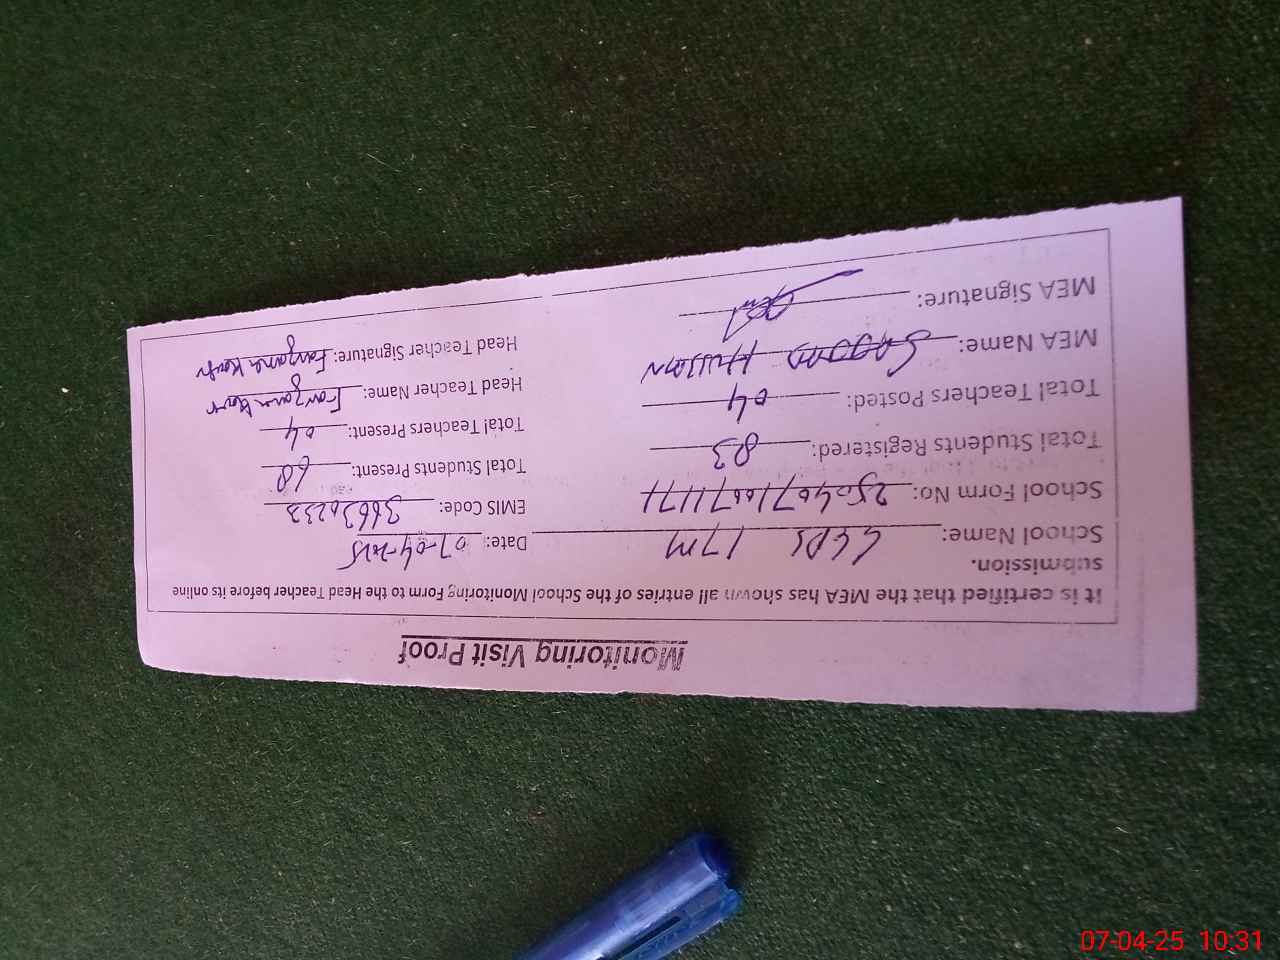 Monitoring Visit Proof
It is certified that the MEA has shown all entries of the School Monitoring Form to the Head Teacher before its online
submission.
School Name: GGPS 17M Date: 07-04-2025
School Form No: EMIS Code: 36630233
Total Students Registered: 83 Total Students Present: 60
Total Teachers Posted: 04 Total Teachers Present: 04
MEA Name: Hussain Head Teacher Name: Farzana
MEA Signature: Head Teacher Signature: Farzana
07-04-25 10:31